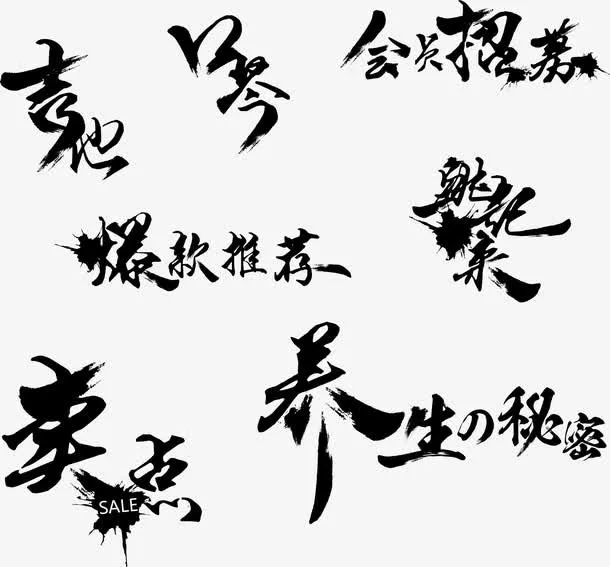 吉他
口琴
会员招募
爆款推荐
卖点
SALE
养生の秘密